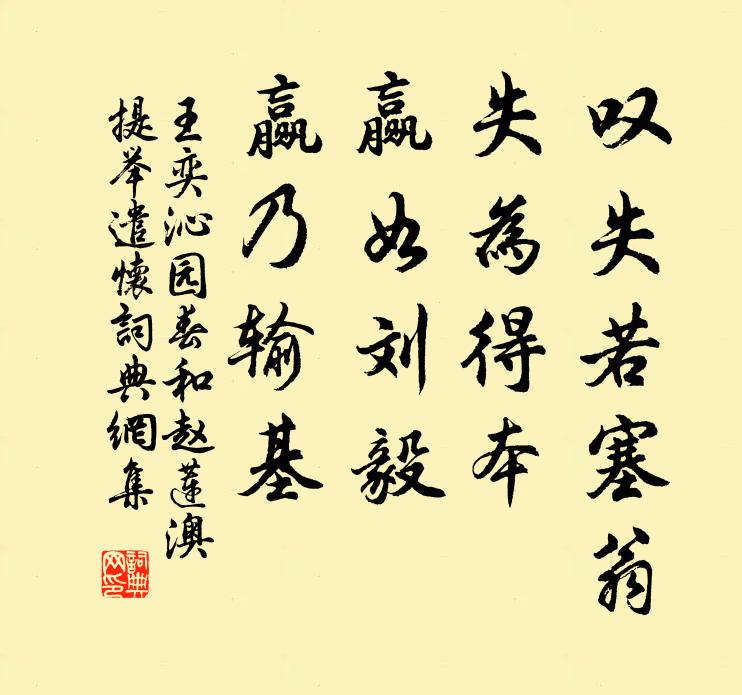 叹失若塞翁
失為得本
赢如刘毅
赢乃输基
王奕沁园春和赵莲澳
提举遣懷詞典網集
詞典网印